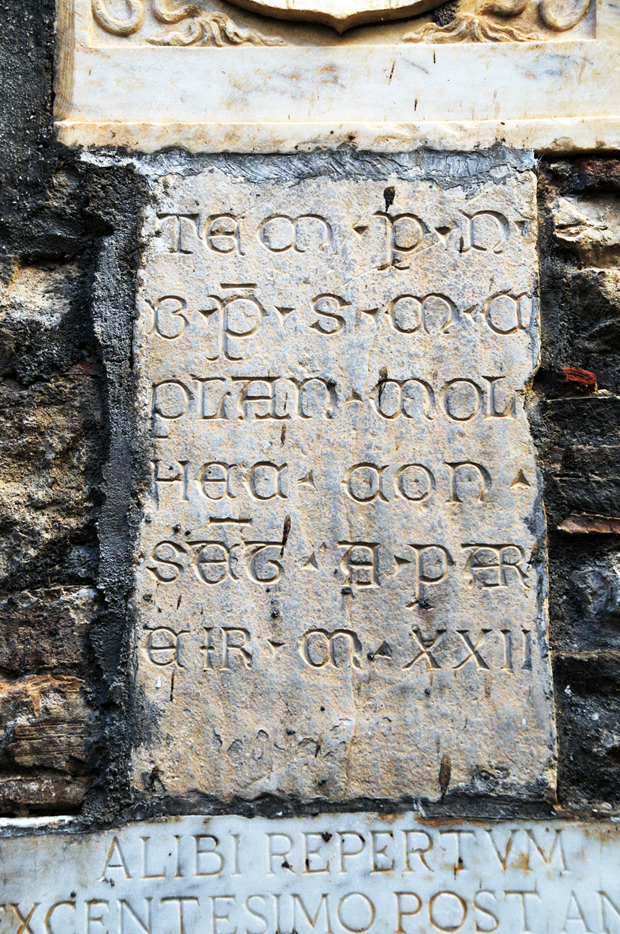 TEM · P · N ·
B · P̄ · S · M · C
PLAN · MOL
HEC · CON ·
SĒT · A · PAR
EIR · M · XXII
ALIBI REPERTVM
EXCENTESIMO POST AN